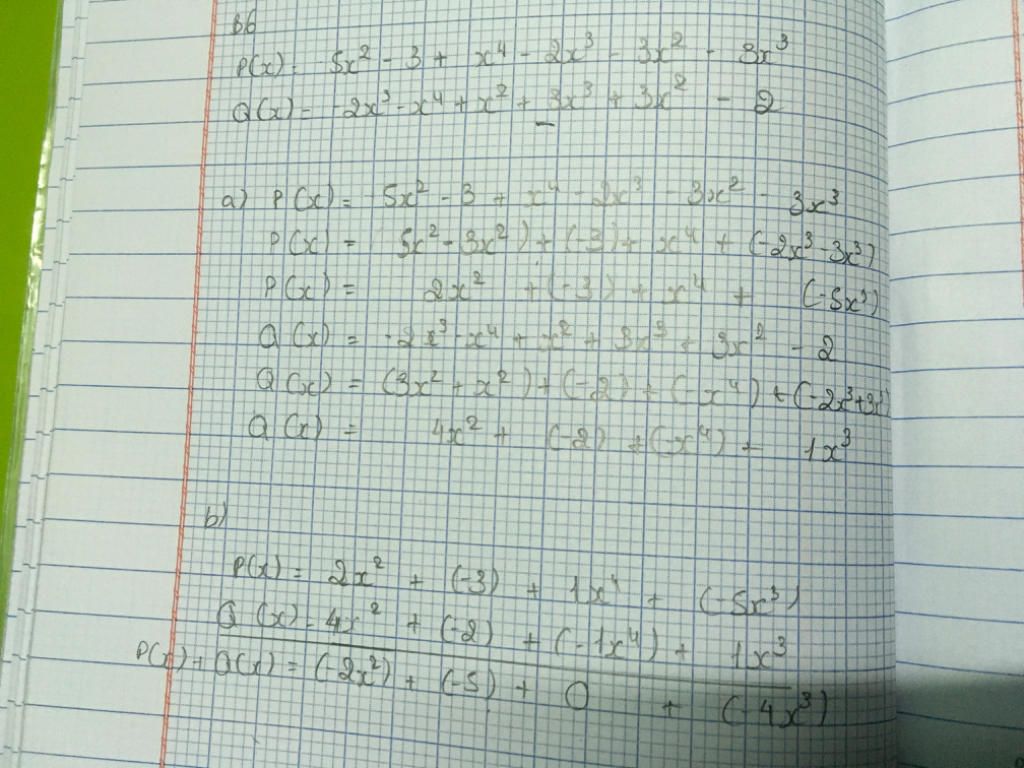 B6
P(x) = 5x² - 3 + x⁴ - 2x³ - 3x² - 3x³
Q(x) = -2x³ - x⁴ + x² + 3x³ + 3x² - 2
a) P(x) = 5x² - 3 + x⁴ - 2x³ - 3x² - 3x³
P(x) = 5x² - 3x²) + (-3) + x⁴ + (-2x³ - 3x³)
P(x) = 2x² + (-3) + x⁴ + (-5x³)
Q(x) = -2x³ - x⁴ + x² + 3x³ + 3x² - 2
Q(x) = (3x² + x²) + (-2) + (-x⁴) + (-2x³ + 3x³)
Q(x) = 4x² + (-2) + (-x⁴) + 1x³
b)
P(x) = 2x² + (-3) + 1x⁴ + (-5x³)
Q(x) = 4x² + (-2) + (-1x⁴) + 1x³
P(x) + Q(x) = (-2x²) + (-5) + 0 + (-4x³)